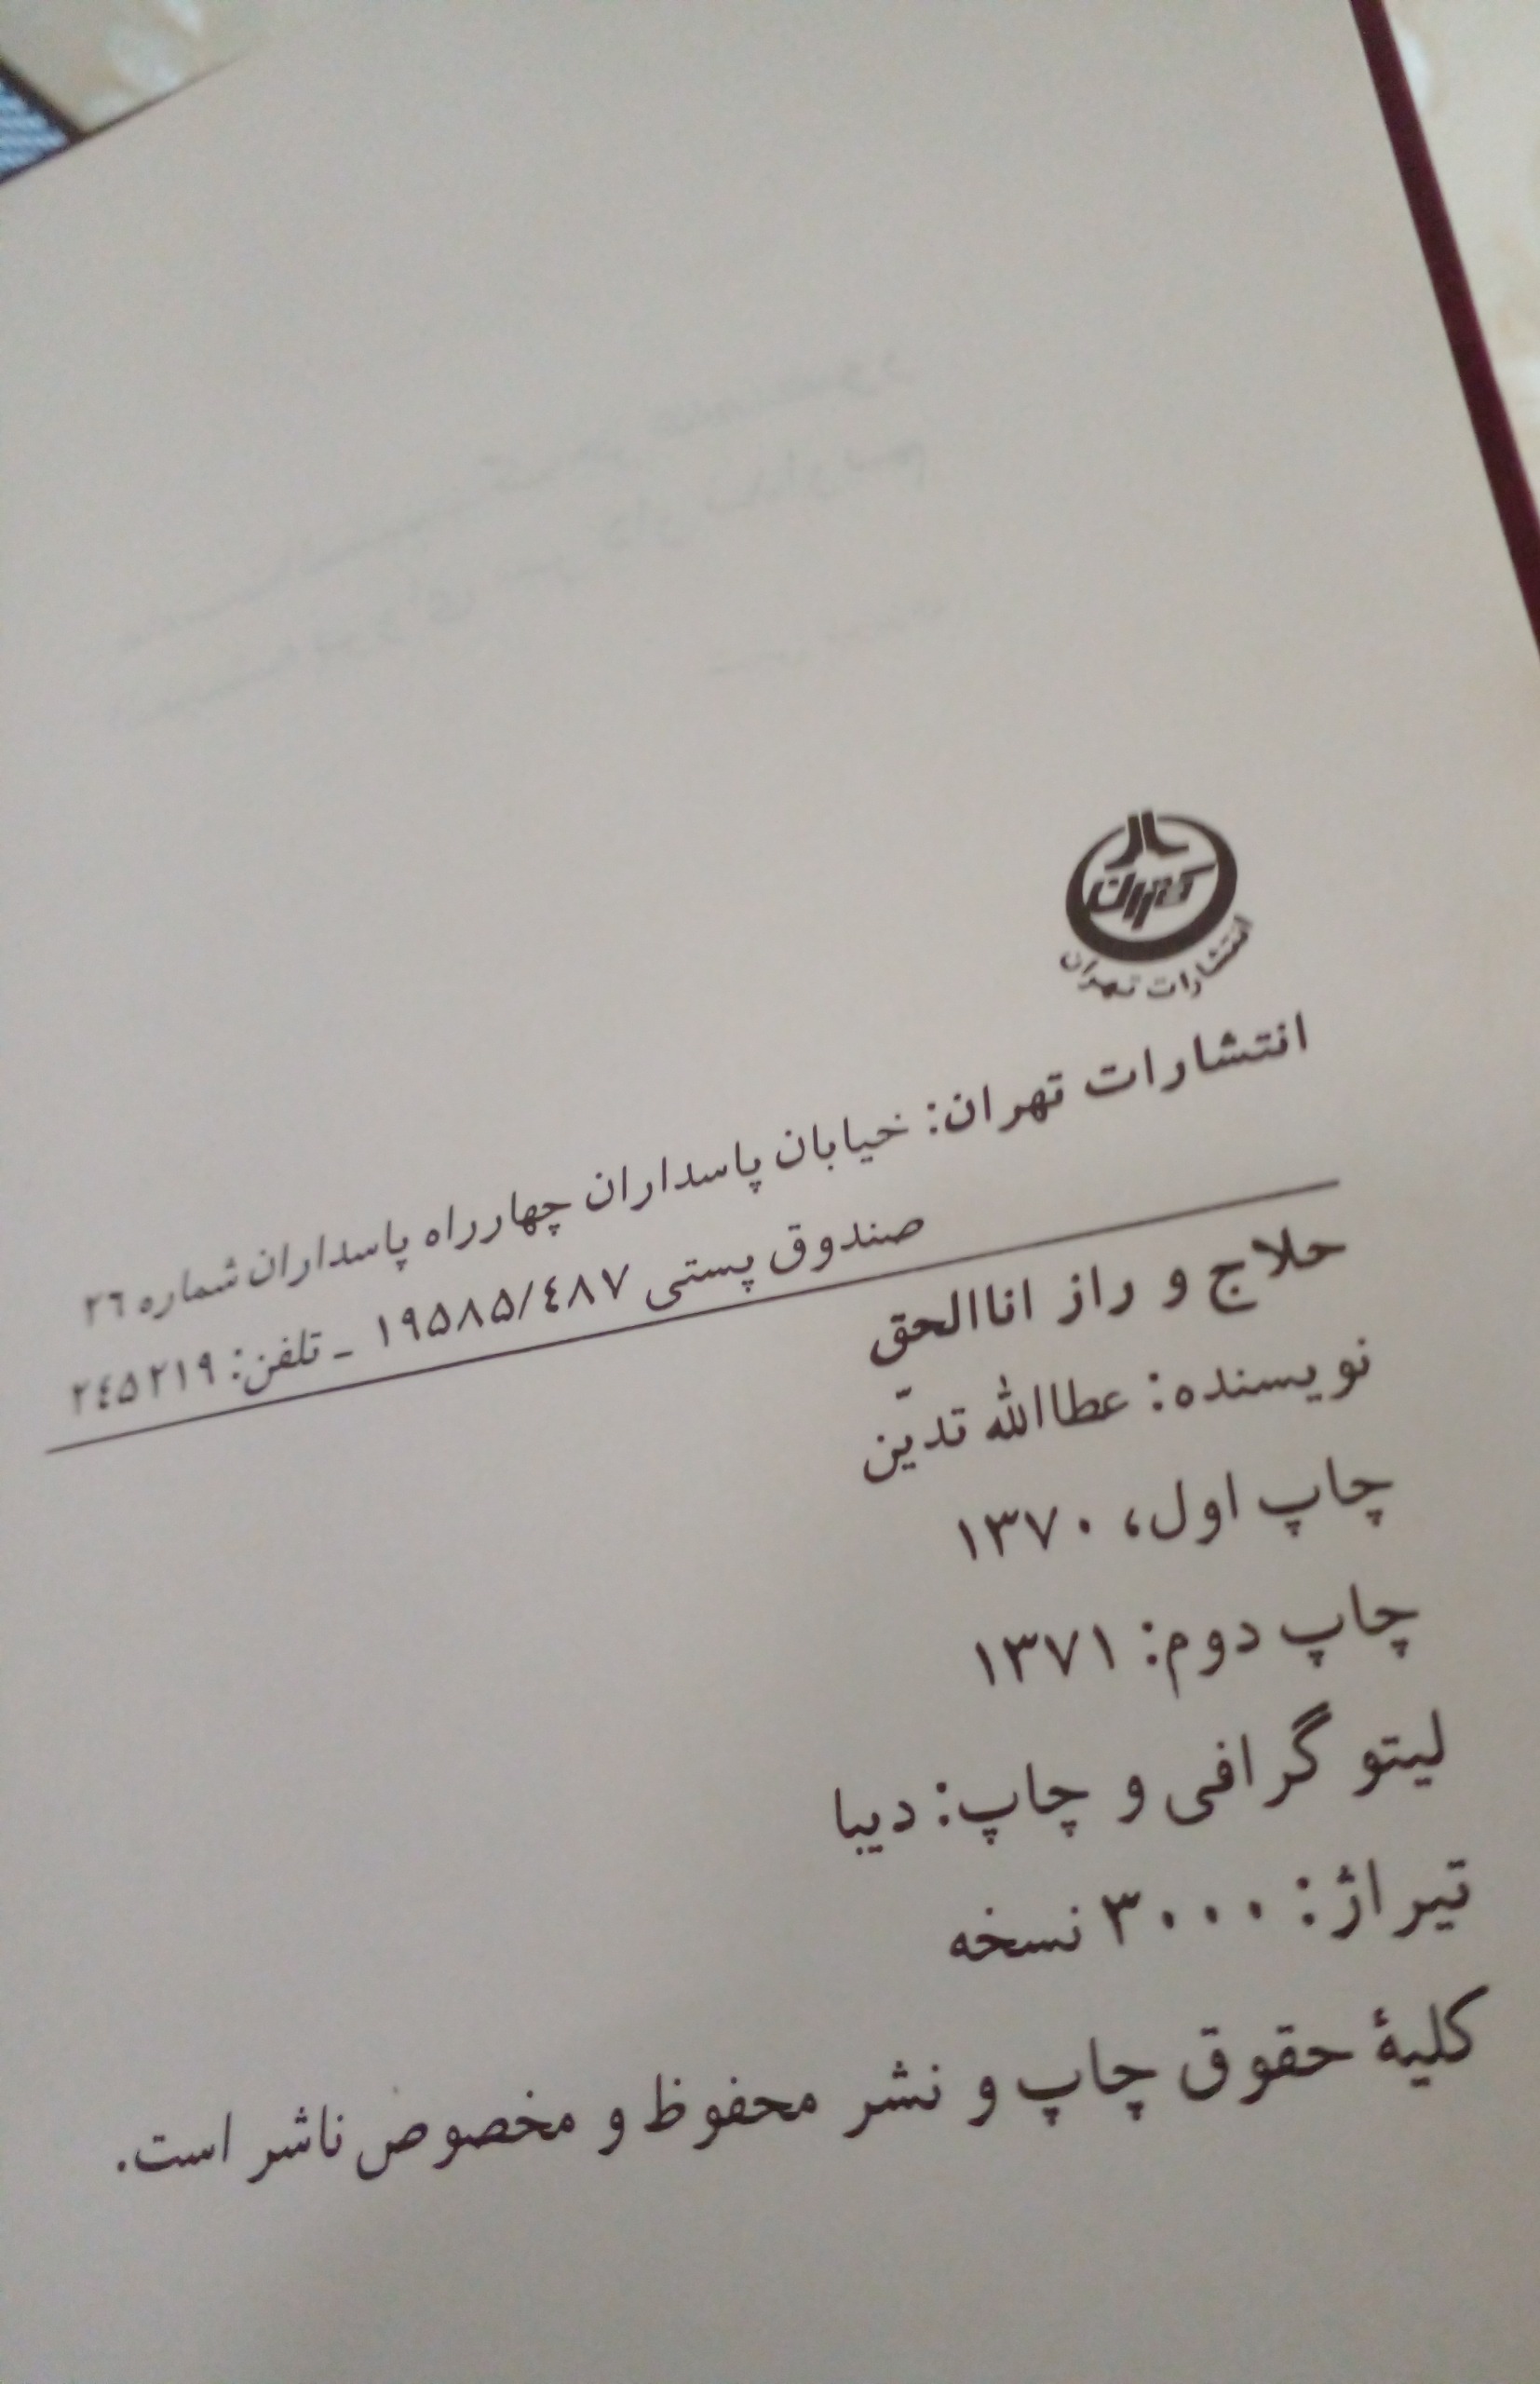 تهران
انتشارات تهران
انتشارات تهران: خیابان پاسداران چهارراه پاسداران شماره ۲۶
صندوق پستی ۱۹۵۸۵/۴۸۷ ـ تلفن: ۲۴۵۲۱۹
حلاج و راز اناالحق
نویسنده: عطاالله تدیّن
چاپ اول، ۱۳۷۰
چاپ دوم: ۱۳۷۱
لیتو گرافی و چاپ: دیبا
تیراژ: ۳۰۰۰ نسخه
کلیهٔ حقوق چاپ و نشر محفوظ و مخصوص ناشر است.